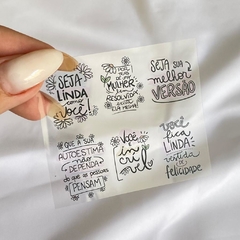 SEJA
LINDA
como
você!
MULHER
RESOLVIDA
SEJA SUA
melhor
VERSÃO
QUE A SUA
AUTOESTIMA
não
DEPENDA
do que as pessoas
PENSAM
Você
é
in
crí
vel
você
fica
LINDA
vestida
de